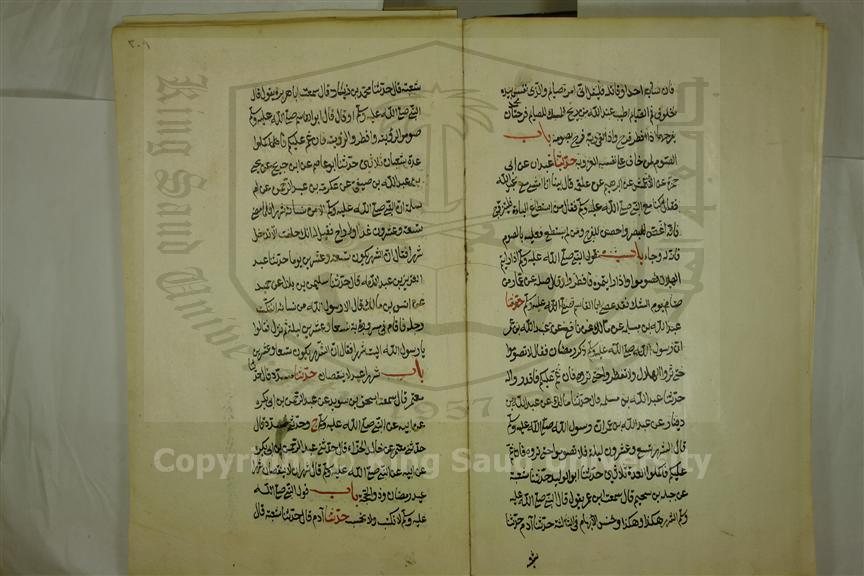 فان سابه احد او قاتله فليقل انى امرؤ صايم والذى نفسى بيده
لخلوف فم الصايم اطيب عند الله من ريح المسك للصايم فرحتان
يفرحهما اذا افطر فرح واذا لقى ربه فرح بصومه باب
الصوم لمن خاف على نفسه العزوبة حدثنا عبدان عن ابى
حمزة عن الاعمش عن ابرهيم عن علقمة قال بينا انا امشى مع عبد الله
فقال كنا مع النبى صلى الله عليه وسلم فقال من استطاع الباءة فليتزوج
فانه اغض للبصر واحصن للفرج ومن لم يستطع فعليه بالصوم
فانه له وجاء باب قول النبى صلى الله عليه وسلم اذا رايتم
الهلال فصوموا واذا رايتموه فافطروا وقال صلة عن عمار من
صام يوم الشك فقد عصى ابا القاسم صلى الله عليه وسلم حدثنا
عبد الله بن مسلمة عن مالك عن نافع عن عبد الله بن عمر
ان رسول الله صلى الله عليه وسلم ذكر رمضان فقال لا تصوموا
حتى تروا الهلال ولا تفطروا حتى تروه فان غم عليكم فاقدروا له
حدثنا عبد الله بن مسلمة قال حدثنا مالك عن عبد الله بن
دينار عن عبد الله بن عمر ان رسول الله صلى الله عليه وسلم
قال الشهر تسع وعشرون ليلة فلا تصوموا حتى تروه فان غم
عليكم فاكملوا العدة ثلاثين حدثنا ابو الوليد حدثنا شعبة
عن جبلة بن سحيم قال سمعت ابن عمر يقول قال النبى صلى الله عليه
وسلم الشهر هكذا وهكذا وخنس الابهام فى الثالثة حدثنا آدم حدثنا
٢٠٩
شعبة قال حدثنا محمد بن زياد قال سمعت ابا هريرة يقول قال
النبى صلى الله عليه وسلم او قال قال ابو القاسم صلى الله عليه وسلم
صوموا لرؤيته وافطروا لرؤيته فان غم عليكم فاكملوا
عدة شعبان ثلاثين حدثنا ابو عاصم عن ابن جريج عن يحيى
بن عبد الله بن صيفى عن عكرمة بن عبد الرحمن عن ام
سلمة ان النبى صلى الله عليه وسلم الى من نسائه شهرا فلما مضى
تسعة وعشرون غدا او راح فقيل له انك حلفت الا تدخل
شهرا فقال ان الشهر يكون تسعة وعشرين يوما حدثنا عبد
العزيز بن عبد الله قال حدثنا سليمن بن بلال عن حميد
عن انس بن مالك قال الى رسول الله من نسائه وانفكت
رجله فاقام فى مشربة تسعا وعشرين ليلة ثم نزل فقالوا
يا رسول الله اليت شهرا فقال ان الشهر يكون تسعا وعشرين
باب شهرا عيد لا ينقصان حدثنا مسدد قال حدثنا
معتمر قال سمعت اسحق بن سويد عن عبد الرحمن بن ابى بكرة
عن ابيه عن النبى صلى الله عليه وسلم ح وحدثنى مسدد قال
حدثنى معتمر عن خالد الحذاء قال حدثنى عبد الرحمن بن ابى بكرة
عن ابيه عن النبى صلى الله عليه وسلم قال شهران لا ينقصان شهرا
عيد رمضان وذو الحجة باب قول النبى صلى الله
عليه وسلم لا نكتب ولا نحسب حدثنا آدم قال حدثنا شعبة قال
King Saud University
1957
Copyright © King Saud University